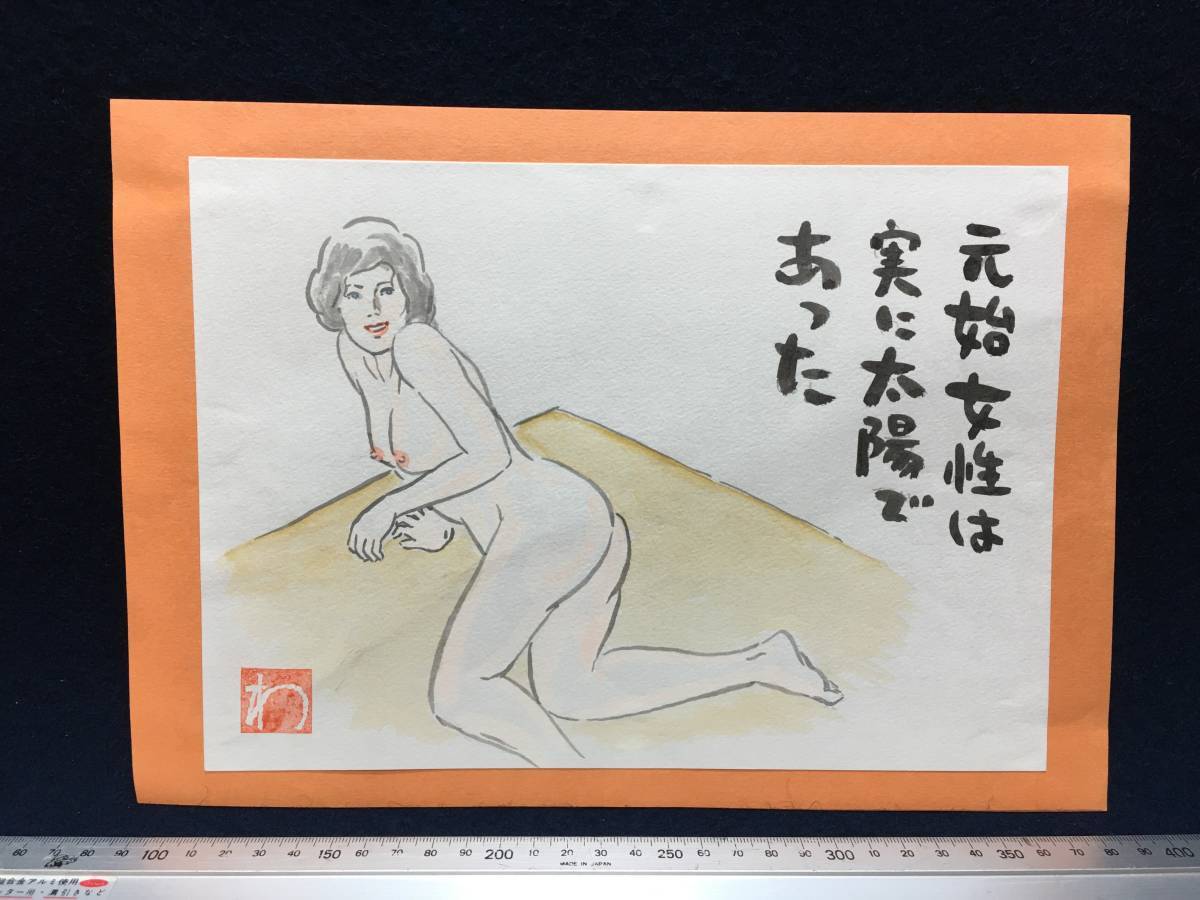 元始女性は
実に太陽で
あった
わ
60 70 80 90 100 10 20 30 40 150 60 70 80 90 200 10 20 30 40 250 60 70 80 90 300 10 20 30 40 350 60 70 80 90 400
MADE IN JAPAN
合金アルミ使用
ター用・溝引きなど